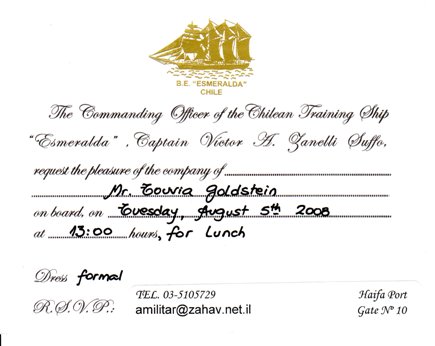 B.E. "ESMERALDA"
CHILE
The Commanding Officer of the Chilean Training Ship
"Esmeralda", Captain Víctor A. Zanelli Suffo,
request the pleasure of the company of
Mr. Touvia Goldstein
on board, on Tuesday, August 5th 2008
at 13:00 hours, for Lunch
Dress formal
R.S.V.P.: TEL. 03-5105729
amilitar@zahav.net.il
Haifa Port
Gate Nº 10